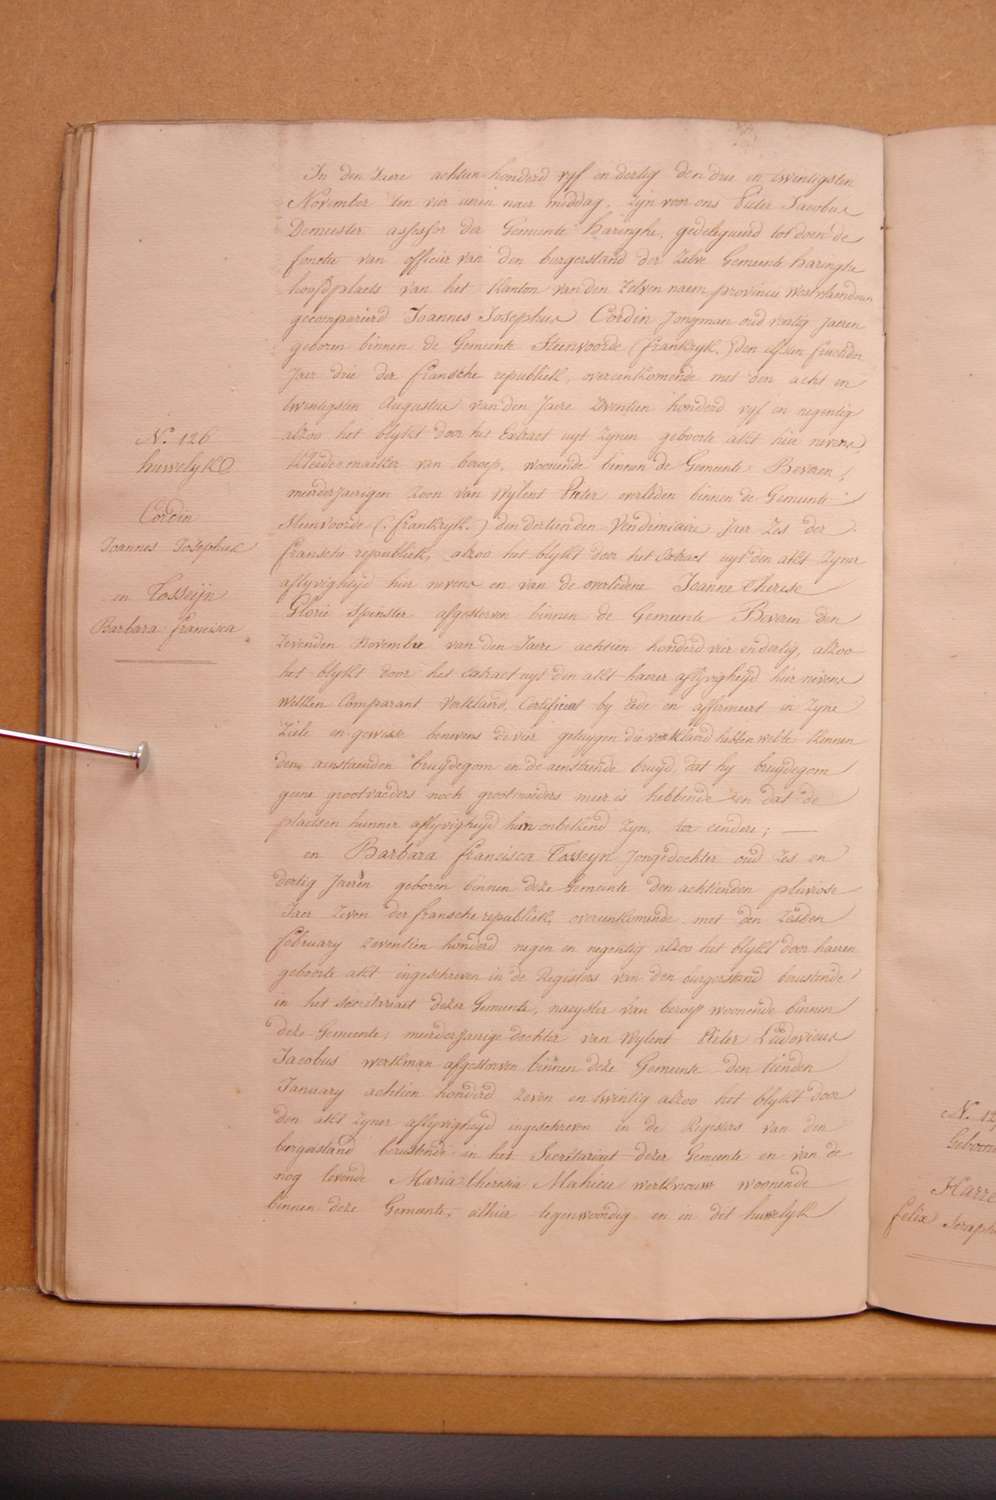 N. 126
huwelijk
Cordin
Joannes Josephus
en Tosseijn
Barbara francisca
In den Jaere achtien honderd vyf en dertig den drie en twintigsten
November ten vier uren naer middag, zyn voor ons Pieter Jacobus
Demeester assessor der Gemeente haringhe, gedelegueerd tot doen de
functie van officier van den burgerstand der zelve Gemeente haringhe
hoofdplaets van het kanton van den zelven naem provincie westvlaenderen
gecompareerd Joannes Josephus Cordin Jongman oud veertig Jaeren
geboren binnen de Gemeente Steenvoorde (frankryk.) den elfsten fructidor
Jaer drie der fransche republiek, overeenkomende met den acht en
twintigsten Augustus van den Jaere zeventien honderd vyf en negentig
alzoo het blykt door het Extract uyt zynen geboorte akt hier nevens,
kleedermaeker van beroep, woonende binnen de Gemeente Beveren,
meerderjaerigen zoon van wylent Pieter overleden binnen de Gemeente
Steenvoorde (frankryk.) den dertienden Vendimiaire Jaer zes der
fransche republiek, alzoo het blykt door het Extract uyt den akt zyner
aflyvigheyd hier nevens en van de overledene Joanne Therese
Glorie spinster afgestorven binnen de Gemeente Beveren den
zevenden November van den Jaere achtien honderd vier en dertig, alzoo
het blykt door het Extract uyt den akt haerer aflyvigheyd hier nevens
welken Comparant verklaerd, Certificeert by Eede en affirmeert in zyne
Ziele en gewisse benevens de vier getuygen die verklaerd hebben wel te kennen
den aenstaenden bruydegom en de aenstaende bruyd, dat hy bruydegom
geene grootvaeders noch grootmoeders meer is hebbende en dat de
plaetsen hunner aflyvigheyd hun onbekend zyn, ter eendere; —
en Barbara francisca Tosseyn Jongedochter oud zes en
dertig Jaeren geboren binnen deze Gemeente den achtienden pluviose
Jaer zeven der fransche republiek, overeenkomende met den zesden
february zeventien honderd negen en negentig alzoo het blykt door haeren
geboorte akt ingeschreven in de Registers van den burgerstand berustende
in het secretariaet dezer Gemeente, naeyster van beroep woonende binnen
deze Gemeente, meerderjaerige dochter van wylent Pieter Ludovicus
Jacobus werkman afgestorven binnen deze Gemeente den tienden
January achtien honderd zeven en twintig alzoo het blykt door
den akt zyner aflyvigheyd ingeschreven in de Registers van den
burgerstand berustende in het Secretariaet dezer Gemeente en van de
nog levende Maria theresia Mahieu werkvrouw woonende
binnen deze Gemeente, alhier tegenwoordig en in dit huwelyk
N. 12
Geboor
Harre
felix Seraph